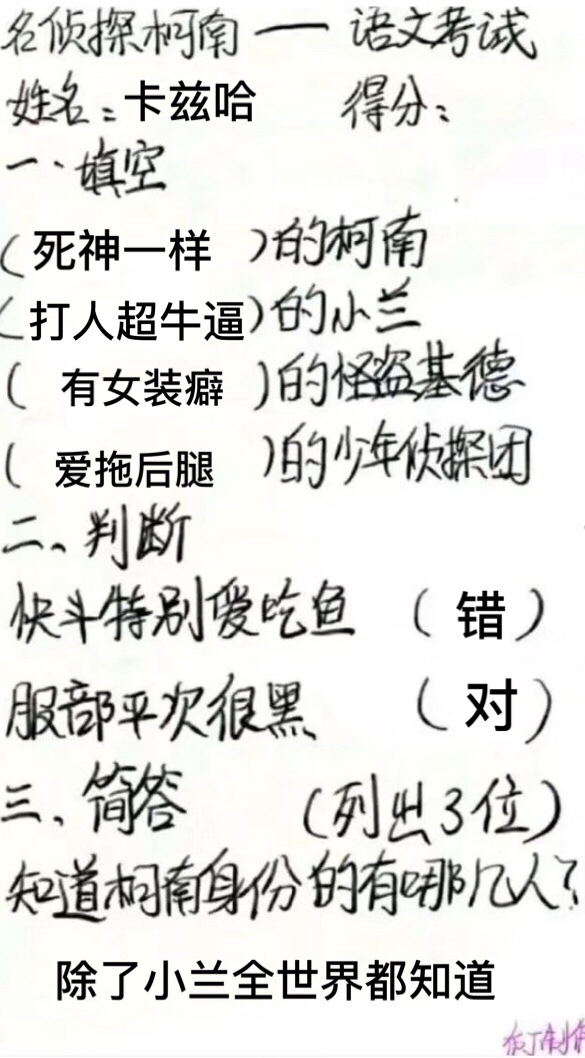 名侦探柯南 — 语文考试
姓名：卡兹哈 得分：
一、填空
（死神一样）的柯南
（打人超牛逼）的小兰
（有女装癖）的怪盗基德
（爱拖后腿）的少年侦探团
二、判断
快斗特别爱吃鱼（错）
服部平次很黑（对）
三、简答（列出3位）
知道柯南身份的有哪几人？
除了小兰全世界都知道